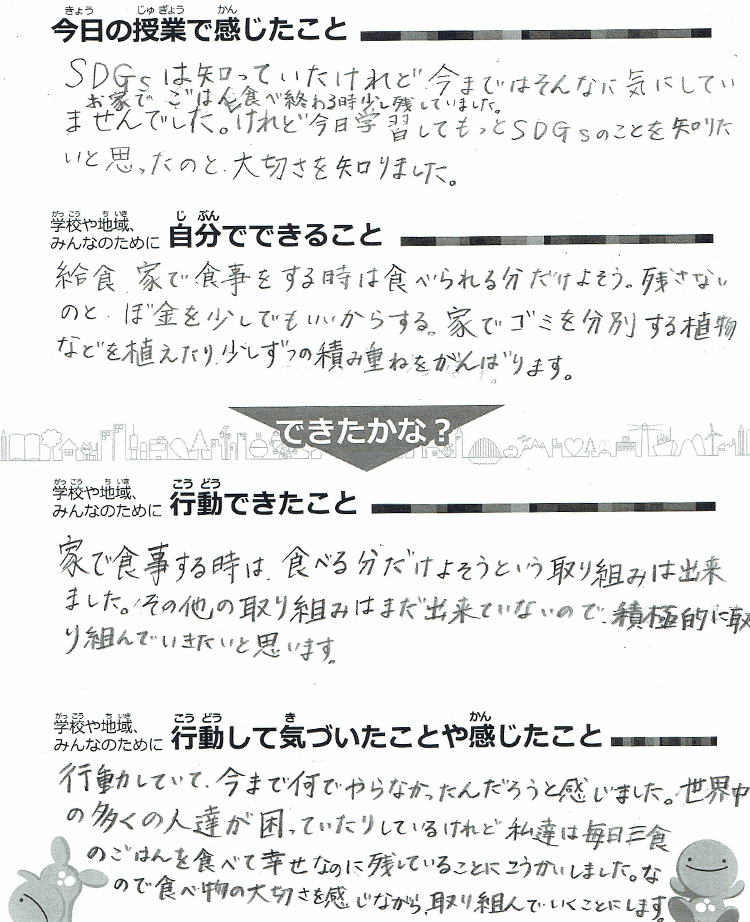 きょう じゅぎょう かん
今日の授業で感じたこと
SDGsは知っていたけれど今まではそんなに気にしてい
お家でごはんを食べ終わる時少し残していました。
ませんでした。けれど今日学習してもっとSDGsのことを知りた
いと思ったのと、大切さを知りました。
がっこう ちいき
学校や地域、
みんなのために
じぶん
自分でできること
給食、家で食事をする時は食べられる分だけよそう。残さない
のと、ぼ金を少しでもいいからする。家でゴミを分別する植物
などを植えたり、少しずつの積み重ねをがんばります。
できたかな？
がっこう ちいき
学校や地域、
みんなのために
こうどう
行動できたこと
家で食事する時は、食べる分だけよそうという取り組みは出来
ました。その他の取り組みはまだ出来ていないので、積極的に取
り組んでいきたいと思います。
がっこう ちいき
学校や地域、
みんなのために
こうどう き かん
行動して気づいたことや感じたこと
行動していて、今まで何でやらなかったんだろうと感じました。世界中
の多くの人達が困っていたりしているけれど私達は毎日三食
のごはんを食べて幸せなのに残していることにこうかいしました。な
ので食べ物の大切さを感じながら、取り組んでいくことにします。